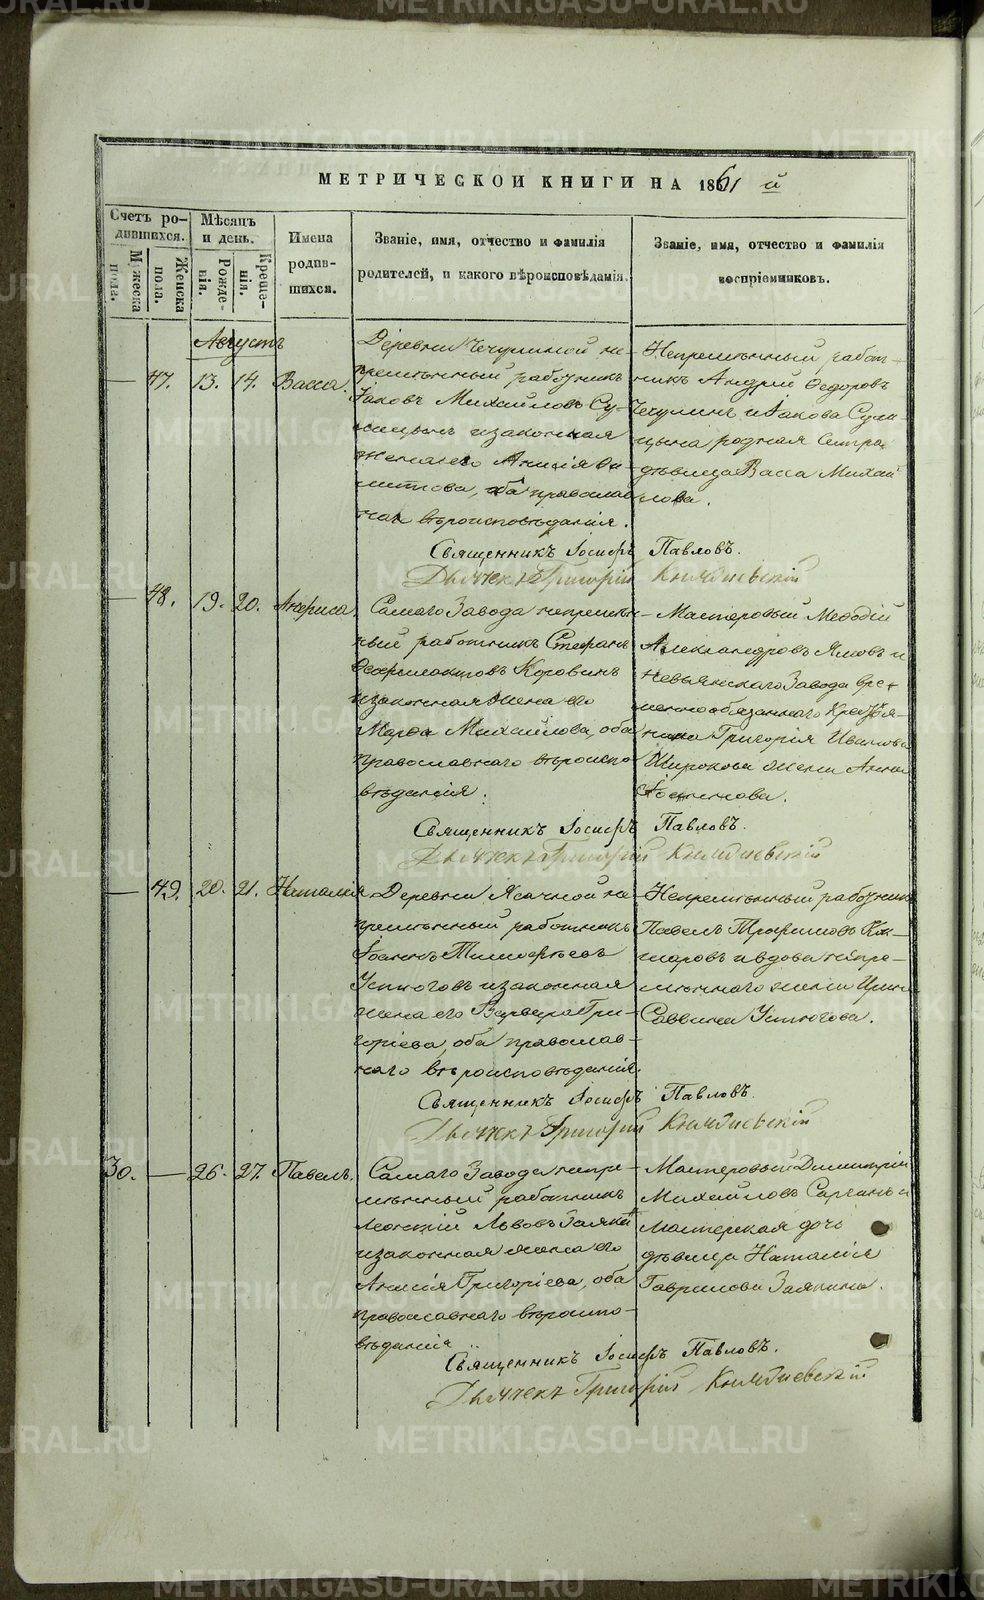 МЕТРИЧЕСКОЙ КНИГИ НА 1861 й
Счетъ родившихся.
Мужеска пола.
Женска пола.
Мѣсяцъ и день.
Рожденія.
Крещенія.
Имена родившихся.
Званіе, имя, отчество и фамилія
родителей, и какого вѣроисповѣданія.
Званіе, имя, отчество и фамилія
воспріемниковъ.
Августъ
47. 13. 14. Васса.
Деревни Чечулиной не-
премѣнный работникъ
Іаковъ Михайловъ
и законная
жена его Анисія Ди-
митріева, оба православ
ная вѣроисповѣданія.
Непремѣнный работ-
никъ Андрей Ѳедоровъ
Чечулинъ и Іакова
родная сестра
дѣвица Васса Михай
лова.
Священникъ Іосифъ Павловъ.
Дьячекъ Григорій
48. 19. 20. Анфиса.
Самаго Завода непремѣн-
ный работникъ Стефанъ
Ѳеофилактовъ Коровинъ
и законная жена его
Марѳа Михайлова, оба
православнаго вѣроиспо
вѣданія.
Мастеровый Меѳодій
Александровъ Ямовъ и
Невьянскаго Завода вре-
меннообязаннаго крестья-
нина Григорія Иванова
Широкова жена Анна
Священникъ Іосифъ Павловъ.
Дьячекъ Григорій
49. 20. 21. Наталія
Деревни Ясачной не
премѣнный работникъ
Іоаннъ Тимофѣевъ
Устюговъ и законная
жена его Варвара Гри-
горіева, оба православ-
наго вѣроисповѣданія.
Непремѣнный работникъ
Павелъ Трофимовъ Ко-
маровъ и вдова непре-
мѣннаго жена Ирина
Саввина Устюгова.
Священникъ Іосифъ Павловъ.
Дьячекъ Григорій
30. 26. 27. Павелъ.
Самаго Завода непре-
мѣнный работникъ
Леонтій Львовъ Заякин
и законная жена его
Анисія Григоріева, оба
православнаго вѣроиспо-
вѣданія
Мастеровый Димитрій
Михайловъ Саргинъ и
мастерская дочь
дѣвица Наталія
Гаврилова Заякина.
Священникъ Іосифъ Павловъ.
Дьячекъ Григорій
METRIKI.GASO-URAL.RU